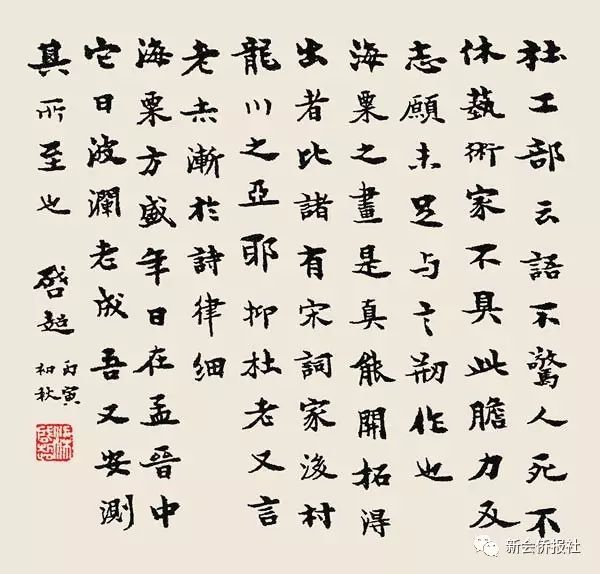 杜工部云語不驚人死不
休藝術家不具此膽力及
志願未足与言刱作也
海粟之畫是真能開拓得
出者比諸有宋詞家後村
龍川之亞耶抑杜老又言
老去漸於詩律細
海粟方盛年日在孟晉中
它日波瀾老成吾又安測
其所至也 啓超
丙寅
初秋
新会侨报社